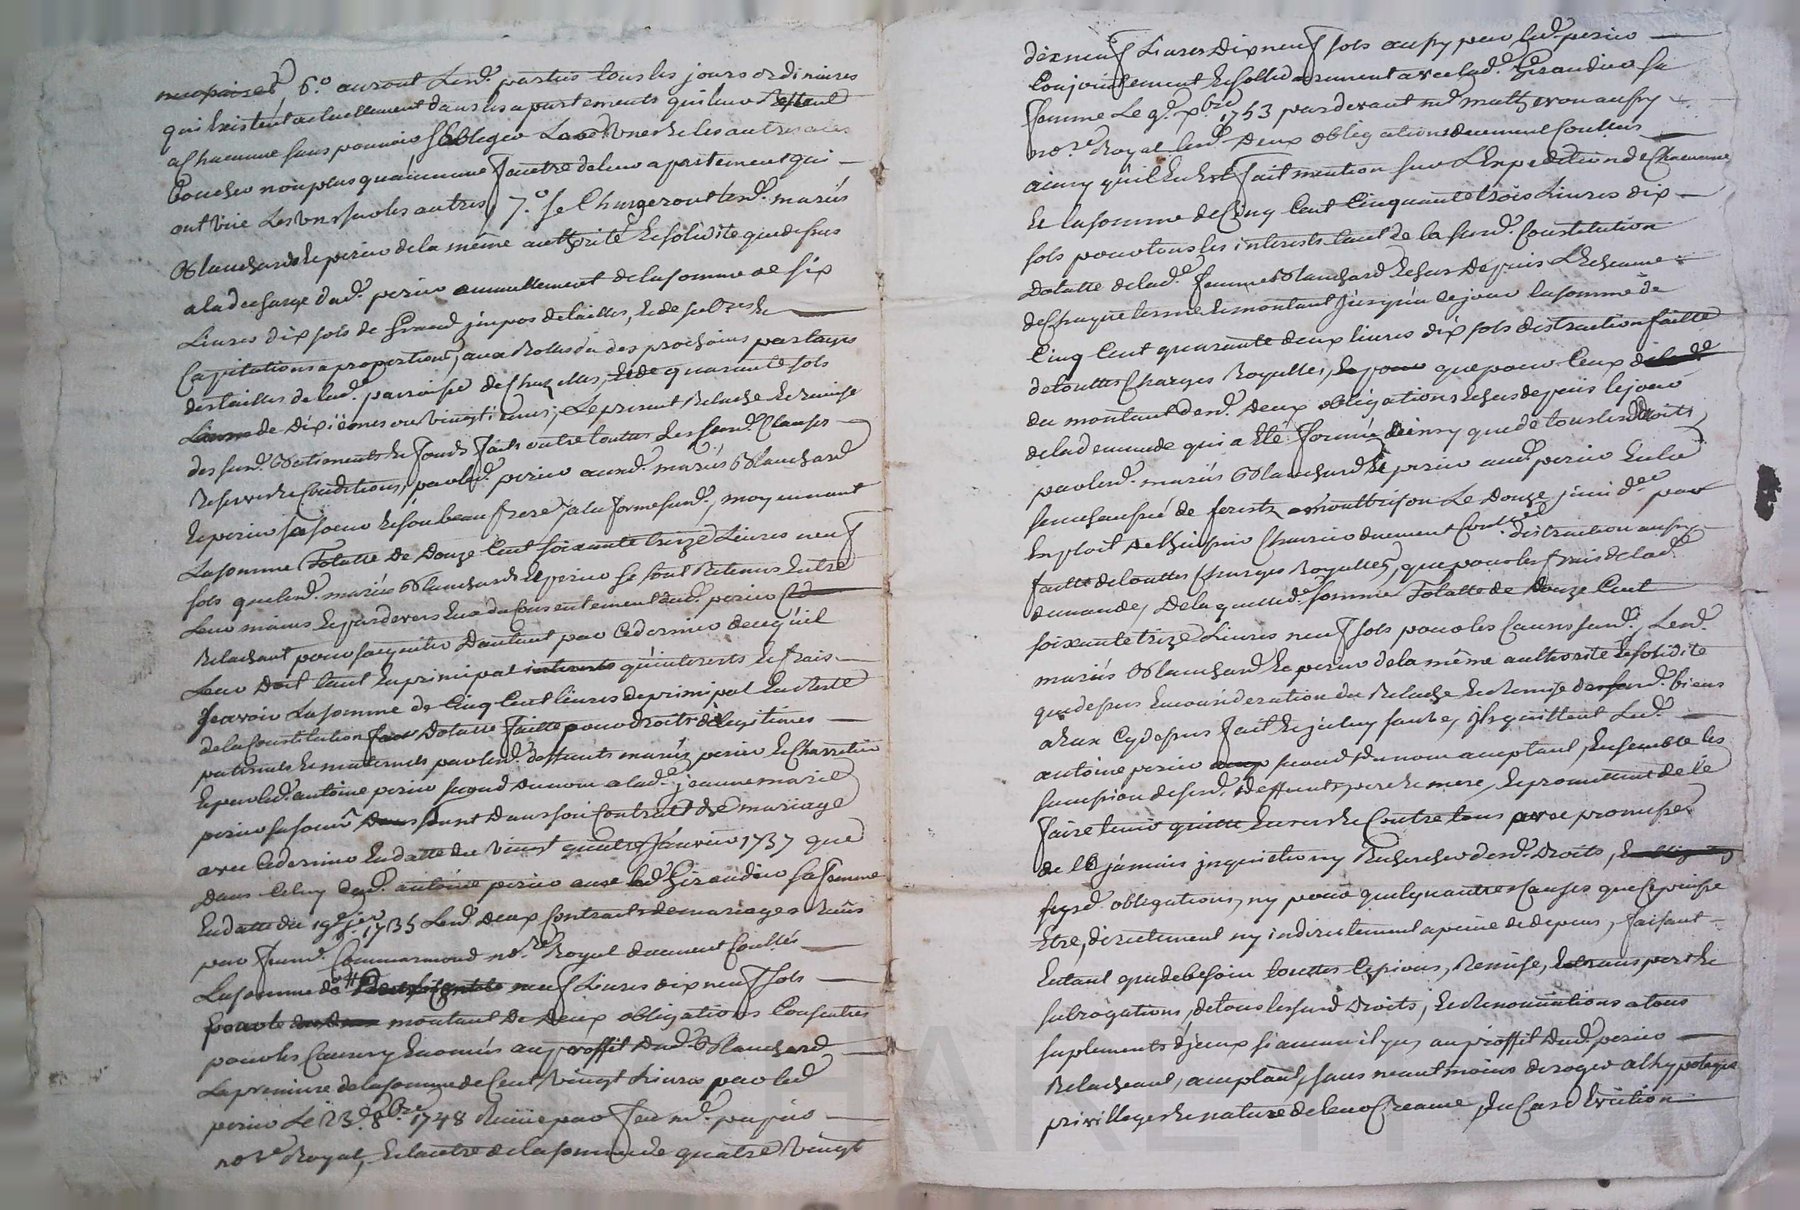 6.º auront lesd. parties tous les jours ordinaires
qui existent actuellement dans les apartements qui leur restent
a chacune sans pouvoir s'obliger l'une les autres a les
boucher non plus qu'aucune fenetre de leur apartement qui
ont vüe les uns sur les autres, 7.º se chargeront lesd. mariés
Blanchard & perier de la même authorité & solidité que dessus
a la decharge dud. perier annuellement de la somme de six
Livres dix sols de grand impos de tailles, & de
Capitations a proportion, aux Rolles des prochains partages
des tailles de lad. paroisse de Chazelles, & de quarante sols
de dixièmes ou vingtièmes; Le present Relache & remise
des susd. Batiments & fonds fait outre toutes les susd. Clauses
Reserves & Conditions, par led. perier auxd. mariés Blanchard
& perier sa soeur & son beau frere a la forme susd., moyennant
La somme Totalle de Douze Cent soixante treize Livres neuf
sols que lesd. mariés Blanchard & perier se sont Retenus entre
Leur mains & pardevers eux du Consentement dud. perier
Relachant pour s'acquiter d'autant par ce dernier de ce qu'il
Leur doit tant en principal qu'interests & frais
sçavoir La somme de Cinq Cent livres de principal & Reste
de la Constitution Dotalle faitte pour droits de legitimes
paternels & maternels par lesd. deffunts mariés perier & Charretier
& par led. antoine perier segond du nom a lad. jeanne marie
perier sa soeur dans son Contrat de mariage
avec ce dernier en datte du vingt quatre Janvier 1737 que
dans celuy dud. antoine perier avec lad. Giraudier sa femme
en datte du 19e 1735 Lesd. deux Contrats de mariages Reçus
par Commarmond no.re Royal duement Contlés
La somme de neuf Livres dix neuf sols
montant de deux obligations Consenties
pour les Causes y enoncés au proffit dud. Blanchard
La premiere de la somme de Cent vingt Livres par led.
perier Le 23.e 8.bre 1748 Reçüe par feu me. papier
no.re Royal, & l'autre de la somme de quatre vingt
dix neuf Livres Dix neuf sols aussy par led. perier
Conjointement & sollidairement avec lad. Giraudier sa
femme Le 9.e x.bre 1753 pardevant me. aussy
no.re Royal lesd. Deux obligations duement Contlées
ainsy qu'il en est fait mention sur L'Expedition de Chacune
& la somme de Cinq Cent Cinquante trois Livres dix
sols pour tous les interests tant de la susd. Constitution
Dotalle de lad. femme Blanchard echus Depuis L'Echeance
de Chaque terme & montant jusqu'a ce jour la somme de
Cinq Cent quarante deux livres dix sols distraction faitte
de touttes Charges Royalles, que pour Ceux
du montant desd. Deux obligations echus depuis le jour
de la demande qui a eté formée ainsy que de tous lesd. Droits
par lesd. mariés Blanchard & perier aud. perier en la
senechaussée de forests a montbrison Le Douze juin dernier par
Exploit de Chirier duement Contlé. distraction aussy
faitte de touttes Charges Royalles, que pour les frais de lad.
demande, De laquelle d. somme Totalle de Douze Cent
soixante treize Livres neuf sols pour les Causes susd. Lesd.
mariés Blanchard & perier de la même authorité & solidité
que dessus en consideration du Relache & Remise des susd. biens
a eux Cy dessus fait & jceluy sauve, jls quittent Led.
antoine perier second du nom acceptant, ensemble les
succession desd. deffunts pere & mere, & promettent de le
faire tenir quitte envers & Contre tous avec promesse
de ne l'en jamais jnquieter ny Rechercher desd. Droits,
susd. obligations, ny pour quelqu'autres Causes que Ce puisse
Etre, directement ny indirectement a peine de depens, faisant
en tant que de besoin touttes Cessions, Remise, & transports &
subrogations, de tous les susd. Droits, & Renonciations a tous
suplements d'jceux si aucun il y a, au proffit dud. perier
Relacheant, acceptant, sans neantmoins deroger a l'hypoteque
privilleges & nature de leur Creance, En Cas d'Eviction